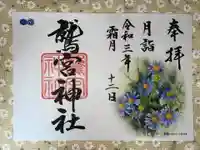 奉拝
月詣
令和三年
霜月
十二日
鷲宮神社